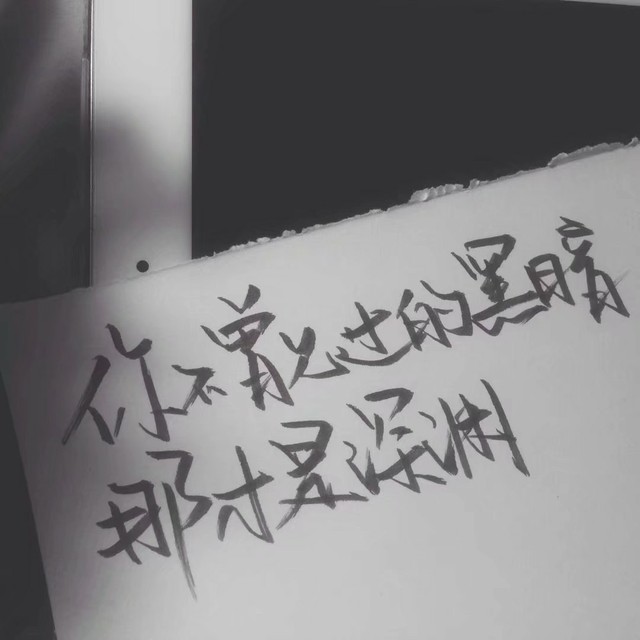 你不曾见过的黑暗
那才是深渊